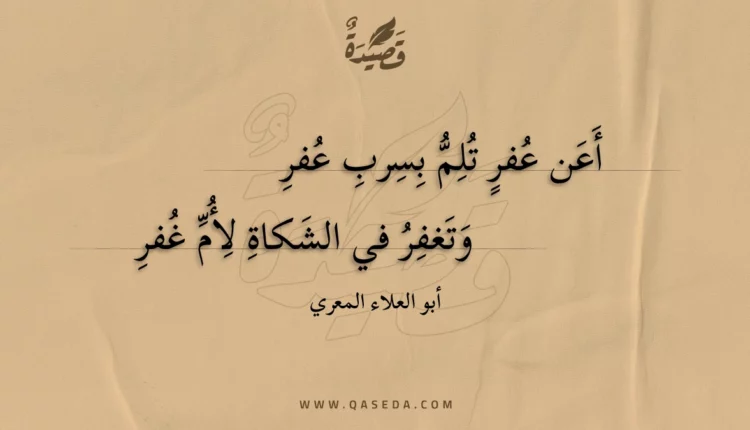 قَصِيدَةٌ
أَعَن عُفرٍ تُلِمُّ بِسِربِ عُفرِ
وَتَغفِرُ في الشَكاةِ لِأُمِّ غُفرِ
أبو العلاء المعري
WWW.QASEDA.COM